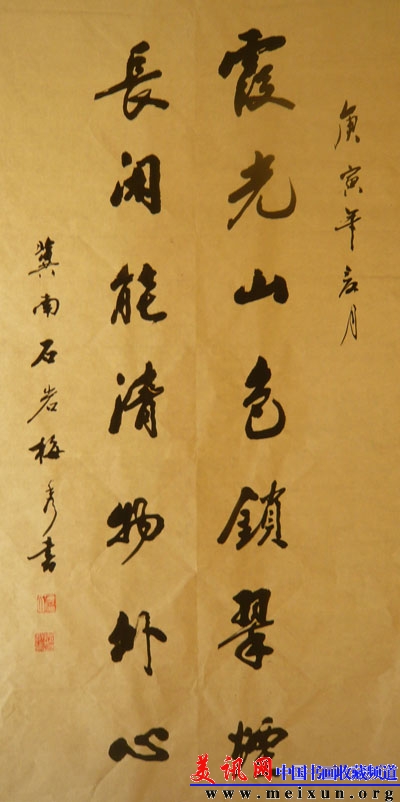 庚寅年冬月
霞光山色鎖翠煙
長閑能清物外心
冀南石岩梅秀書
美訊网 中国书画收藏频道
www.meixun.org